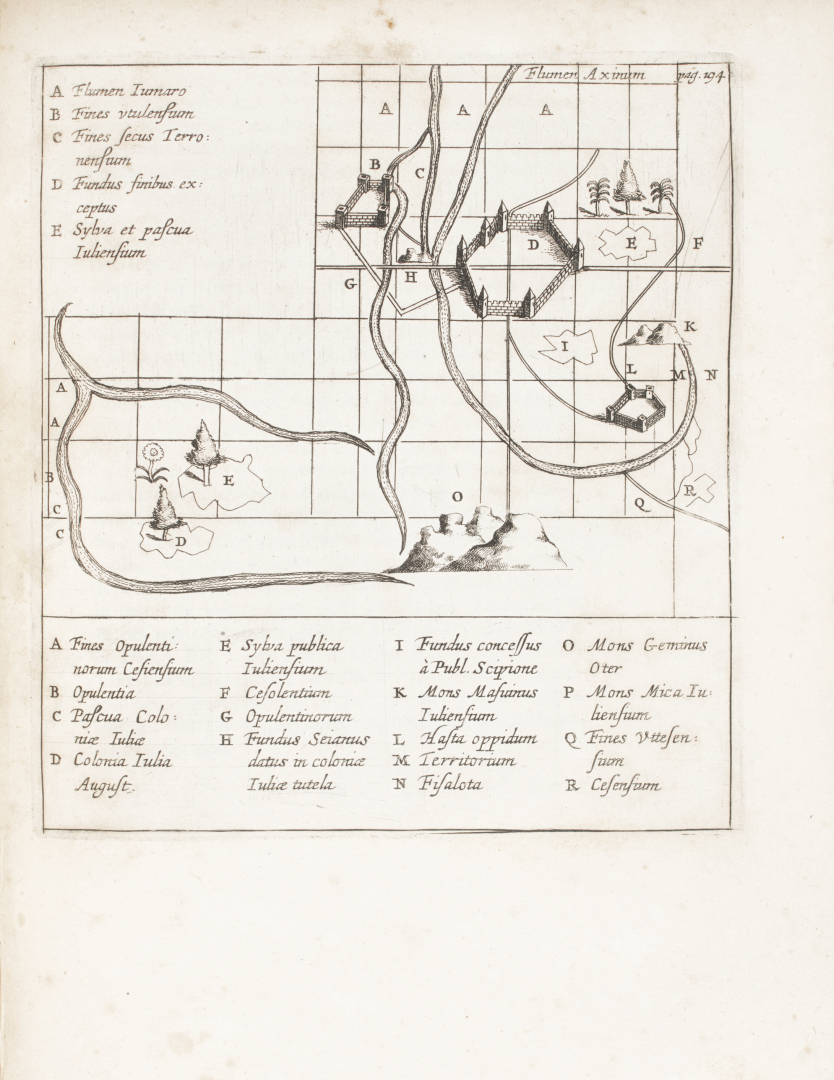 Flumen Axinum pag. 194
A Flumen Iumaro
B Fines vtulenſium
C Fines ſecus Terro:
nenſium
D Fundus finibus ex:
ceptus
E Sylva et paſcua
Iulienſium
A A A
B
C
D
E
F
G
H
I
K
L
M N
A
A
B
C
C
E
D
O
Q
R
A Fines Opulenti:
norum Ceſienſium
B Opulentia
C Paſcua Colo:
niæ Iuliæ
D Colonia Iulia
Auguſt.
E Sylva publica
Iulienſium
F Ceſolentium
G Opulentinorum
H Fundus Seianus
datus in coloniæ
Iuliæ tutela
I Fundus conceſſus
à Publ. Scipione
K Mons Maſianus
Iulienſium
L Haſta oppidum
M Territorium
N Fiſalota
O Mons Geminus
Oter
P Mons Mica Iu:
lienſium
Q Fines Vtteſen:
ſium
R Ceſenſium